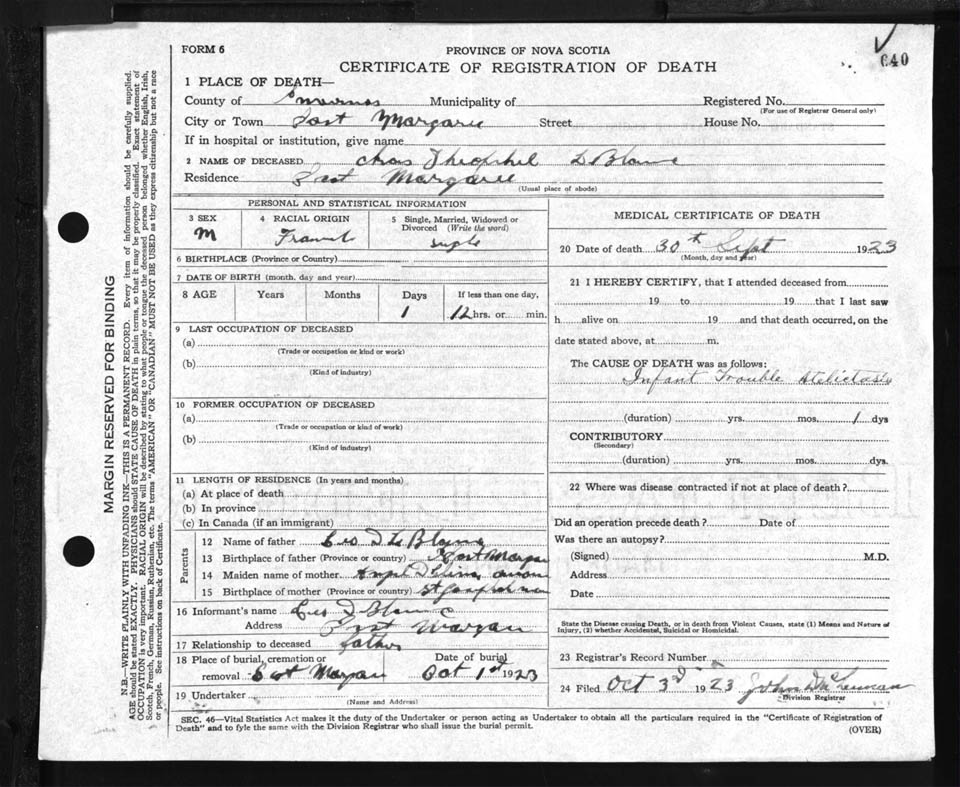 FORM 6
PROVINCE OF NOVA SCOTIA
640
CERTIFICATE OF REGISTRATION OF DEATH
1 PLACE OF DEATH—
County of Inverness Municipality of Registered No.
(For use of Registrar General only)
City or Town East Margaree Street House No.
If in hospital or institution, give name
2 NAME OF DECEASED Chas Theophil LeBlanc
Residence East Margaree
(Usual place of abode)
PERSONAL AND STATISTICAL INFORMATION
3 SEX
M
4 RACIAL ORIGIN
French
5 Single, Married, Widowed or
Divorced (Write the word)
single
6 BIRTHPLACE (Province or Country)
7 DATE OF BIRTH (month, day and year)
8 AGE Years Months Days If less than one day,
1 12 hrs. or min.
9 LAST OCCUPATION OF DECEASED
(a)
(Trade or occupation or kind or work)
(b)
(Kind of industry)
10 FORMER OCCUPATION OF DECEASED
(a)
(Trade or occupation or kind of work)
(b)
(Kind of industry)
11 LENGTH OF RESIDENCE (In years and months)
(a) At place of death
(b) In province
(c) In Canada (if an immigrant)
Parents
12 Name of father LeBlanc
13 Birthplace of father (Province or country) East Margaree
14 Maiden name of mother
15 Birthplace of mother (Province or country)
16 Informant's name LeBlanc
Address East Margaree
17 Relationship to deceased father
18 Place of burial, cremation or Date of burial
removal East Margaree Oct 1st 1923
19 Undertaker
(Name and Address)
MEDICAL CERTIFICATE OF DEATH
20 Date of death 30th Sept 1923
(Month, day and year)
21 I HEREBY CERTIFY, that I attended deceased from
19 to 19 that I last saw
h alive on 19 and that death occurred, on the
date stated above, at m.
The CAUSE OF DEATH was as follows:
Infant Trouble Atelictasis
(duration) yrs. mos. 1 dys
CONTRIBUTORY
(Secondary)
(duration) yrs. mos. dys.
22 Where was disease contracted if not at place of death?
Did an operation precede death? Date of
Was there an autopsy?
(Signed) M.D.
Address
Date
State the Disease causing Death, or in death from Violent Causes, state (1) Means and Nature of
Injury, (2) whether Accidental, Suicidal or Homicidal.
23 Registrar's Record Number
24 Filed Oct 3rd 1923 John
Division Registrar
SEC. 46—Vital Statistics Act makes it the duty of the Undertaker or person acting as Undertaker to obtain all the particulars required in the "Certificate of Registration of
Death" and to fyle the same with the Division Registrar who shall issue the burial permit.
(OVER)
MARGIN RESERVED FOR BINDING
N.B.—WRITE PLAINLY WITH UNFADING INK—THIS IS A PERMANENT RECORD. Every item of information should be carefully supplied.
AGE should be stated EXACTLY. PHYSICIANS should STATE CAUSE OF DEATH in plain terms, so that it may be properly classified. Exact statement of
OCCUPATION is very important. RACIAL ORIGIN will be described by stating to what people or tongue the deceased person belonged whether English, Irish,
Scotch, French, German, Russian, Ruthenian, etc. The terms "AMERICAN" OR "CANADIAN" MUST NOT BE USED as they express citizenship but not a race
or people. See instructions on back of Certificate.